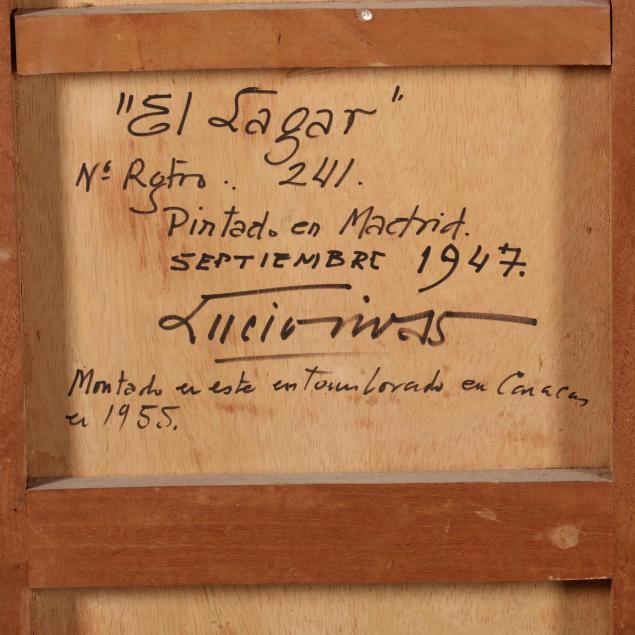 "El Lagar"
Nº Rgtro.. 241.
Pintado en Madrid.
SEPTIEMBRE 1947.
Lucio rivas
Montado en este entamborado en Caracas
en 1955.